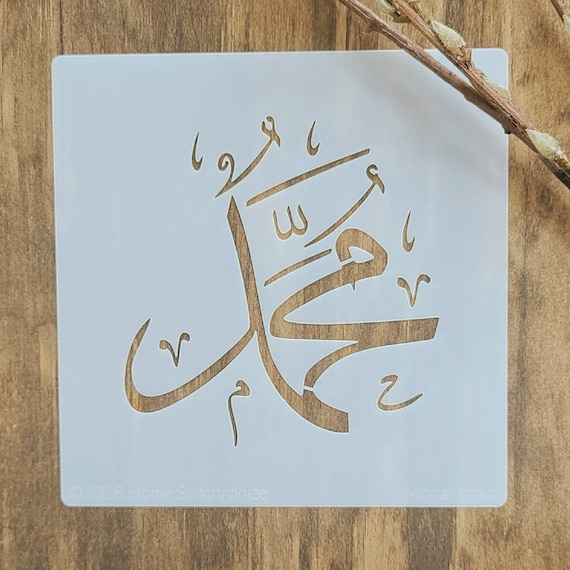 مُحَمَّدٌ
©2018 Home Synchronize
Mohammad